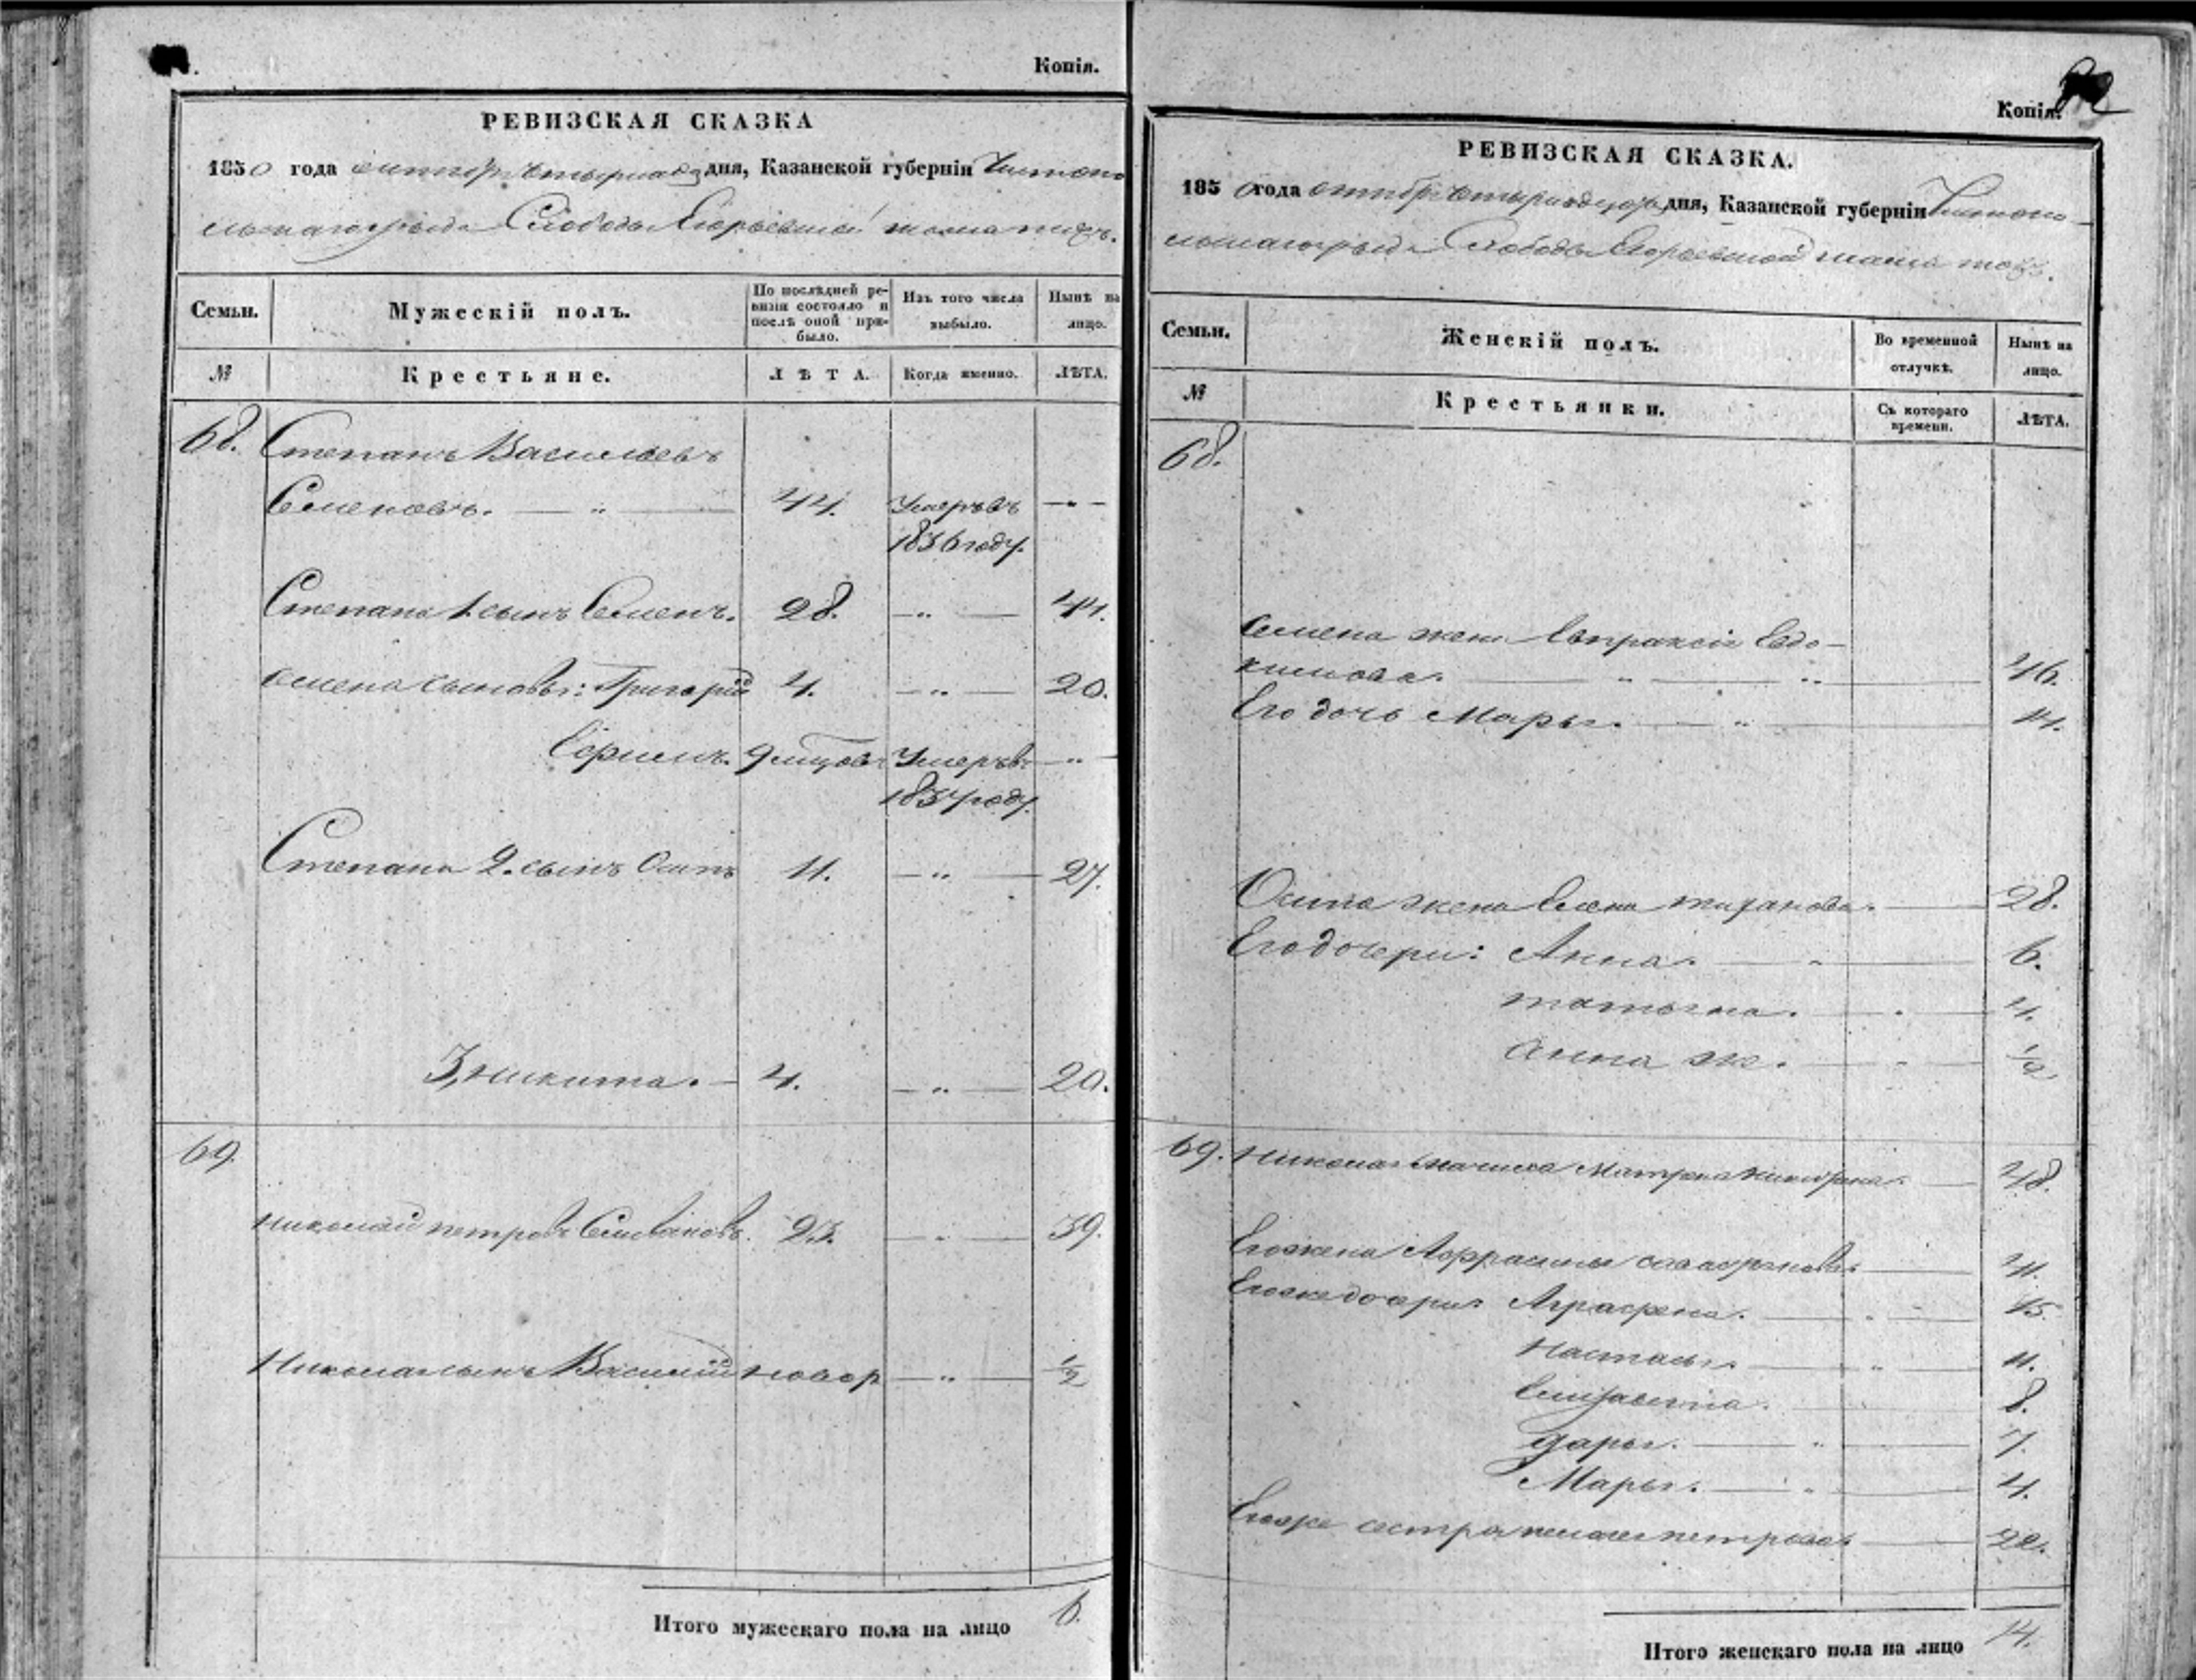 Копія.
РЕВИЗСКАЯ СКАЗКА
1850 года дня, Казанской губерніи Чистопо
Слободы
Семьи.
Мужескій полъ.
По послѣдней ре-
визіи состояло и
послѣ оной при-
было.
Изъ того числа
выбыло.
Нынѣ на
лицо.
№
Крестьяне.
ЛѢТА.
Когда именно.
ЛѢТА.
68. Степанъ Васильевъ
Семеновъ. — " — 44. Умеръ въ — " —
1836 году.
Степана 1. сынъ Семенъ. 28. — " — 44.
Семена сыновья: Григорій 4. — " — 20.
Ефимъ. 9 Умеръ въ — " —
году.
Степана 2. сынъ Осипъ 11. — " — 27.
3, Никита. — 4. — " — 20.
69.
Николай Петровъ 23. — " — 39.
Николая сынъ Василій новор — " — 1/2
Итого мужескаго пола на лицо 6.
Копія.
РЕВИЗСКАЯ СКАЗКА.
1850 года октября дня, Казанской губерніи Чистопо
Слободы
Семьи.
Женскій полъ.
Во временной
отлучкѣ.
Нынѣ на
лицо.
№
Крестьянки.
Съ котораго
времени.
ЛѢТА.
68.
Семена жена Евпраксія Евдо-
кимова. — " — " — 46.
Его дочь Марья. — " — 14.
Осипа жена Елена — 28.
Его дочери: Анна. — " — 6.
Татьяна. — " — 4.
Анна же. — " — 1/2
69. Николая мачиха Матрена — 48.
Его жена — 41.
Его же дочери: Аграфена. — " — 15.
Настасья. — " — 11.
Елизавета. — " — 8.
Дарья. — " — 7.
Марья. — " — 4.
Его же сестра Петрова — 22.
Итого женскаго пола на лицо 14.